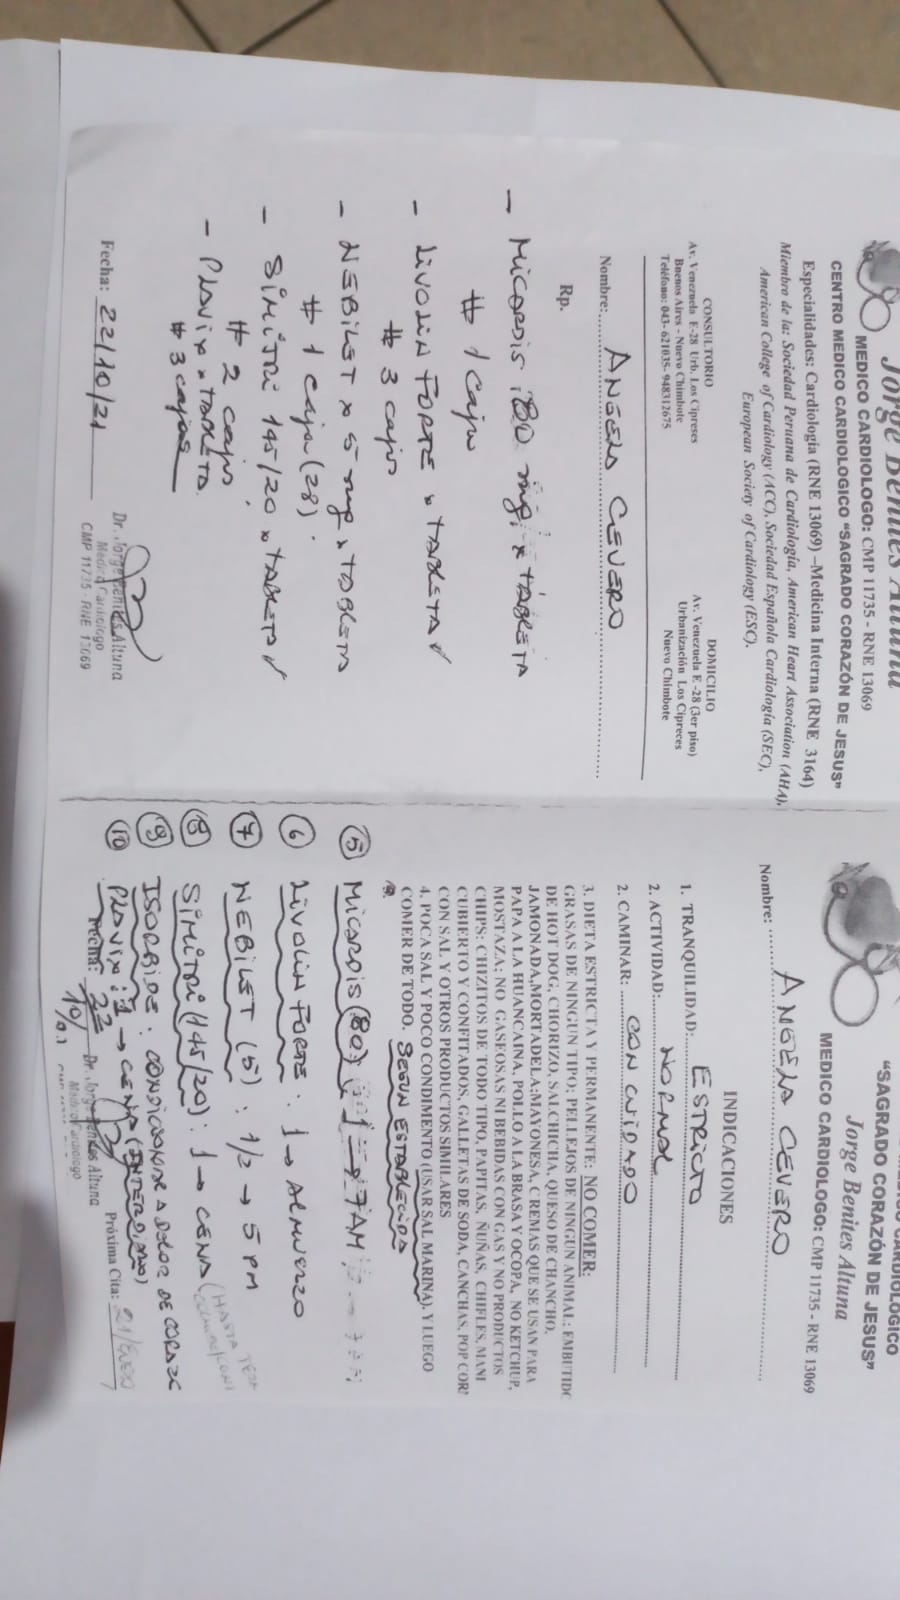 Jorge Benites Altuna
MEDICO CARDIOLOGO: CMP 11735 - RNE 13069
CENTRO MEDICO CARDIOLOGICO “SAGRADO CORAZÓN DE JESUS”
Especialidades: Cardiología (RNE 13069) –Medicina Interna (RNE 3164)
Miembro de la: Sociedad Peruana de Cardiología, American Heart Association (AHA),
American College of Cardiology (ACC), Sociedad Española Cardiología (SEC),
European Society of Cardiology (ESC).
CONSULTORIO
Av. Venezuela E-28 Urb. Los Cipreses
Buenos Aires - Nuevo Chimbote
Teléfono: 043- 621035- 948312675
DOMICILIO
Av. Venezuela E -28 (3er piso)
Urbanización Los Cipreces
Nuevo Chimbote
Nombre: ANGELA CEVERO
Rp.
- MICARDIS 80 mg x TABLETA
# 1 Caja
- LIVOLIN FORTE x TABLETA
# 3 cajas
- NEBILET x 5 mg x TABLETA
# 1 caja (28)
- SIMITRI 145/20 x TABLETA
# 2 cajas
- PLAVIX x TABLETA
# 3 cajas
Fecha: 22/10/21
Dr. Jorge Benites Altuna
Medico Cardiologo
CMP 11735 - RNE 13069
CARDIOLOGICO
“SAGRADO CORAZÓN DE JESUS”
Jorge Benites Altuna
MEDICO CARDIOLOGO: CMP 11735 - RNE 13069
Nombre: ANGELA CEVERO
INDICACIONES
1. TRANQUILIDAD: ESTRICTO
2. ACTIVIDAD: NORMAL
2. CAMINAR: CON CUIDADO
3. DIETA ESTRICTA Y PERMANENTE: NO COMER:
GRASAS DE NINGUN TIPO; PELLEJOS DE NINGUN ANIMAL; EMBUTIDO
DE HOT DOG, CHORIZO, SALCHICHA, QUESO DE CHANCHO,
JAMONADA,MORTADELA;MAYONESA, CREMAS QUE SE USAN PARA
PAPA A LA HUANCAINA, POLLO A LA BRASA Y OCOPA, NO KETCHUP,
MOSTAZA; NO GASEOSAS NI BEBIDAS CON GAS Y NO PRODUCTOS
CHIPS: CHIZITOS DE TODO TIPO, PAPITAS, ÑUÑAS, CHIFLES, MANI
CUBIERTO Y CONFITADOS, GALLETAS DE SODA, CANCHAS, POP COR
CON SAL Y OTROS PRODUCTOS SIMILARES
4. POCA SAL Y POCO CONDIMENTO (USAR SAL MARINA), Y LUEGO
COMER DE TODO. SEGUN ESTABLECIDO
5 MICARDIS (80): 1 → 7 AM
6 LIVOLIN FORTE : 1 → ALMUERZO
7 NEBILET (5) : 1/2 → 5 PM
8 SIMITRI (145/20) : 1 → CENA (HASTA
9 ISORBIDE : CONDICIONADO A DOLOR DE CORAZO
10 PLAVIX : 1 → CENA (INTERDIARIO)
Fecha: 22
10/21
Dr. Jorge Benites Altuna
Medico Cardiologo
Próxima Cita: 21/ENERO